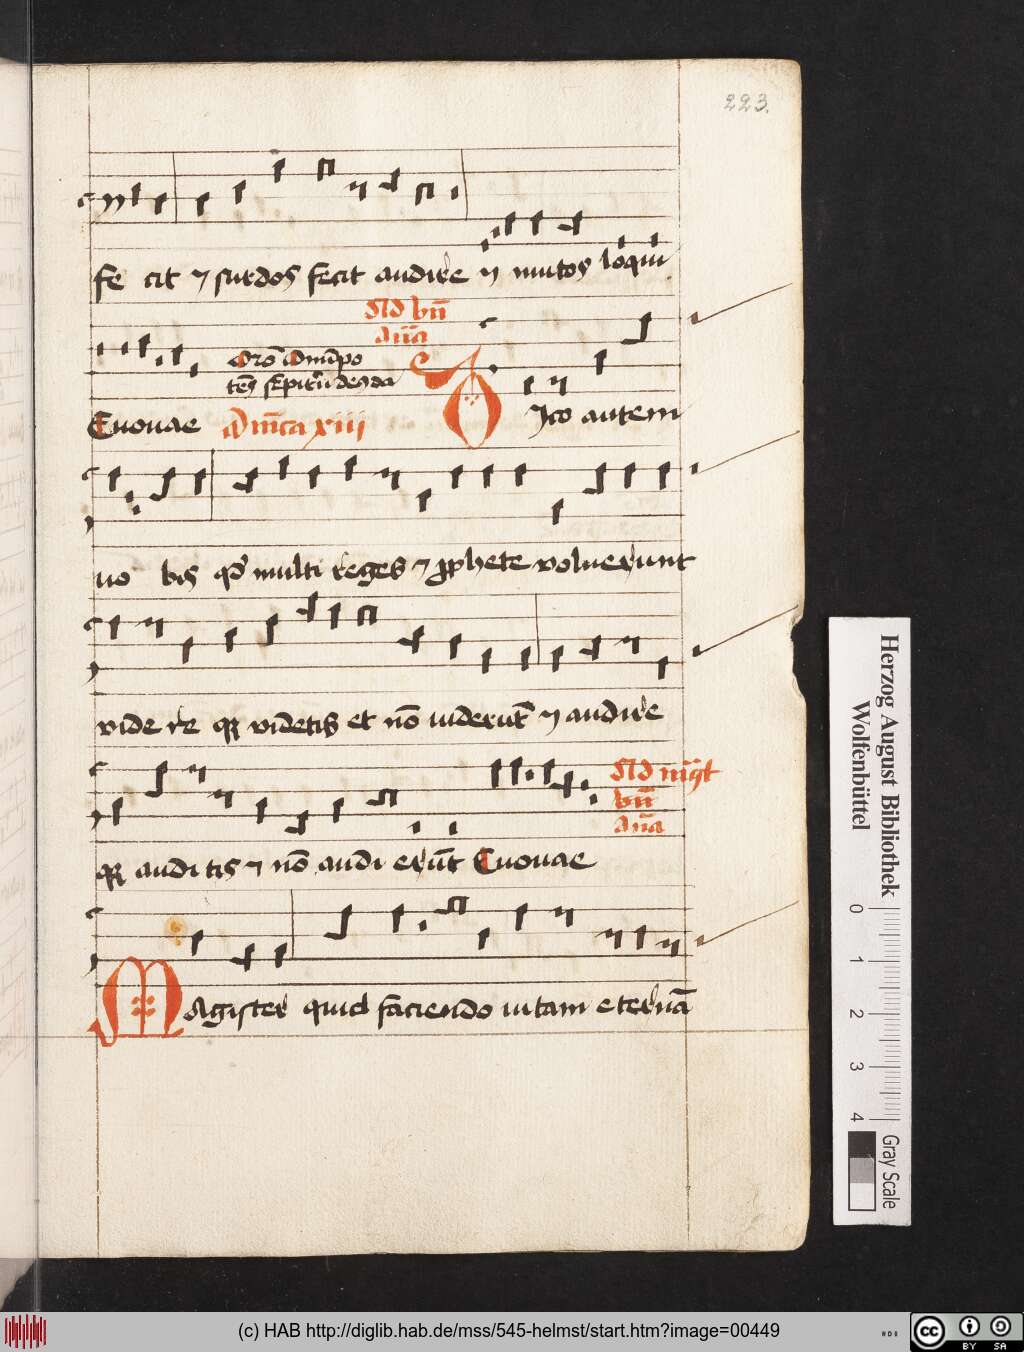 223.
fe cit ⁊ surdos fecit audire ⁊ mutos loqui
Ad bn̄
an̄a
Oro Omīpo
tēs sempitn̄ deus da
Euouae Dn̄ica xiii Dico autem
uo bis qd̄ multi reges ⁊ prophete voluerunt
vide re que videtis et nō uiderut̄ ⁊ audire
Ad mg̅t
bn̄
an̄a
que audi tis ⁊ nō audi erūt Euouae
Magister quid faciendo uitam eternā
Herzog August Bibliothek
Wolfenbüttel
0 1 2 3 4
Gray Scale
(c) HAB http://diglib.hab.de/mss/545-helmst/start.htm?image=00449
cc BY SA